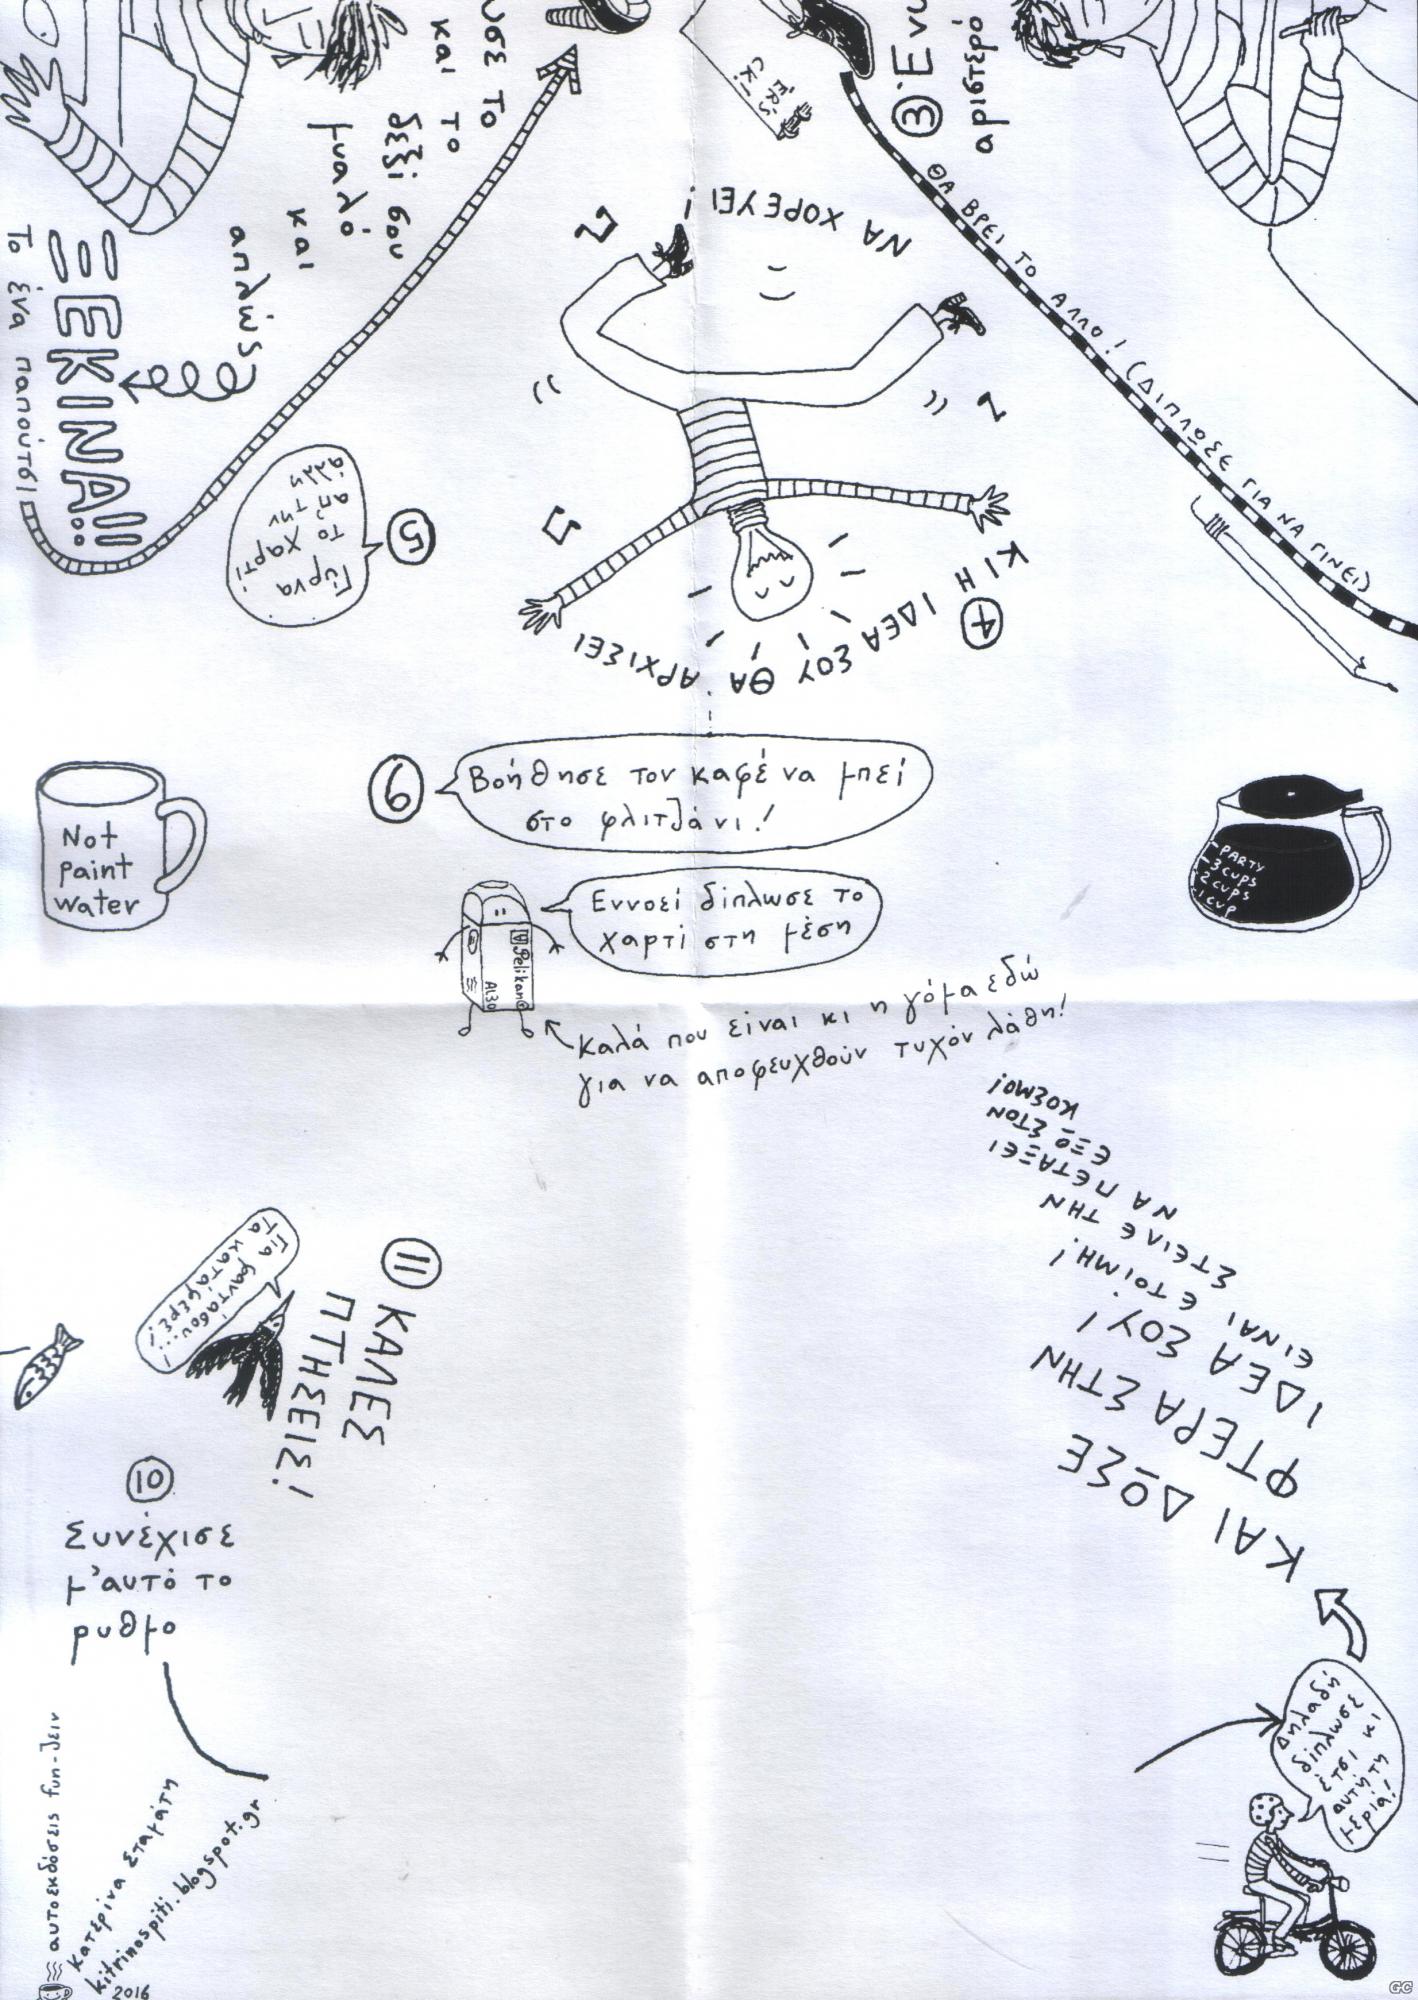 ③ Ένω
αριστερό
ΘΑ ΒΡΕΙ ΤΟ ΑΛΛΟ! (ΔΙΠΛΩΣΕ ΓΙΑ ΝΑ ΓΙΝΕΙ)
το
και το
δεξί σου
μυαλό
και
απλώς
ΞΕΚΙΝΑ!!
Το ένα παπούτσι
④ ΚΙ Η ΙΔΕΑ ΣΟΥ ΘΑ ΑΡΧΙΣΕΙ
ΝΑ ΧΟΡΕΥΕΙ!
⑤
Γύρνα
το χαρτί
απ' την
άλλη
⑥
Βοήθησε τον καφέ να μπεί
στο φλιτζάνι!
Not
paint
water
PARTY
3 CUPS
2 CUPS
1 CUP
Εννοεί δίπλωσε το
χαρτί στη μέση
Pelikan
AL30
Καλά που είναι κι η γόμα εδώ
για να αποφευχθούν τυχόν λάθη!
Δηλαδή
δίπλωσε
έτσι κι
αυτή τη
μεριά!
ΚΑΙ ΔΩΣΕ
ΦΤΕΡΑ ΣΤΗΝ
ΙΔΕΑ ΣΟΥ!
ΕΙΝΑΙ ΕΤΟΙΜΗ!
ΣΤΕΙΛΕ ΤΗΝ
ΝΑ ΠΕΤΑΞΕΙ
ΕΞΩ ΣΤΟΝ
ΚΟΣΜΟ!
⑩
Συνέχισε
μ'αυτό το
ρυθμο
⑪ ΚΑΛΕΣ
ΠΤΗΣΕΙΣ!
Για φαντάσου...!
τα κατάφερε!
αυτοεκδόσεις fun-ζειν
Κατερίνα Σταμάτη
kitrinospiti.blogspot.gr
2016
GC